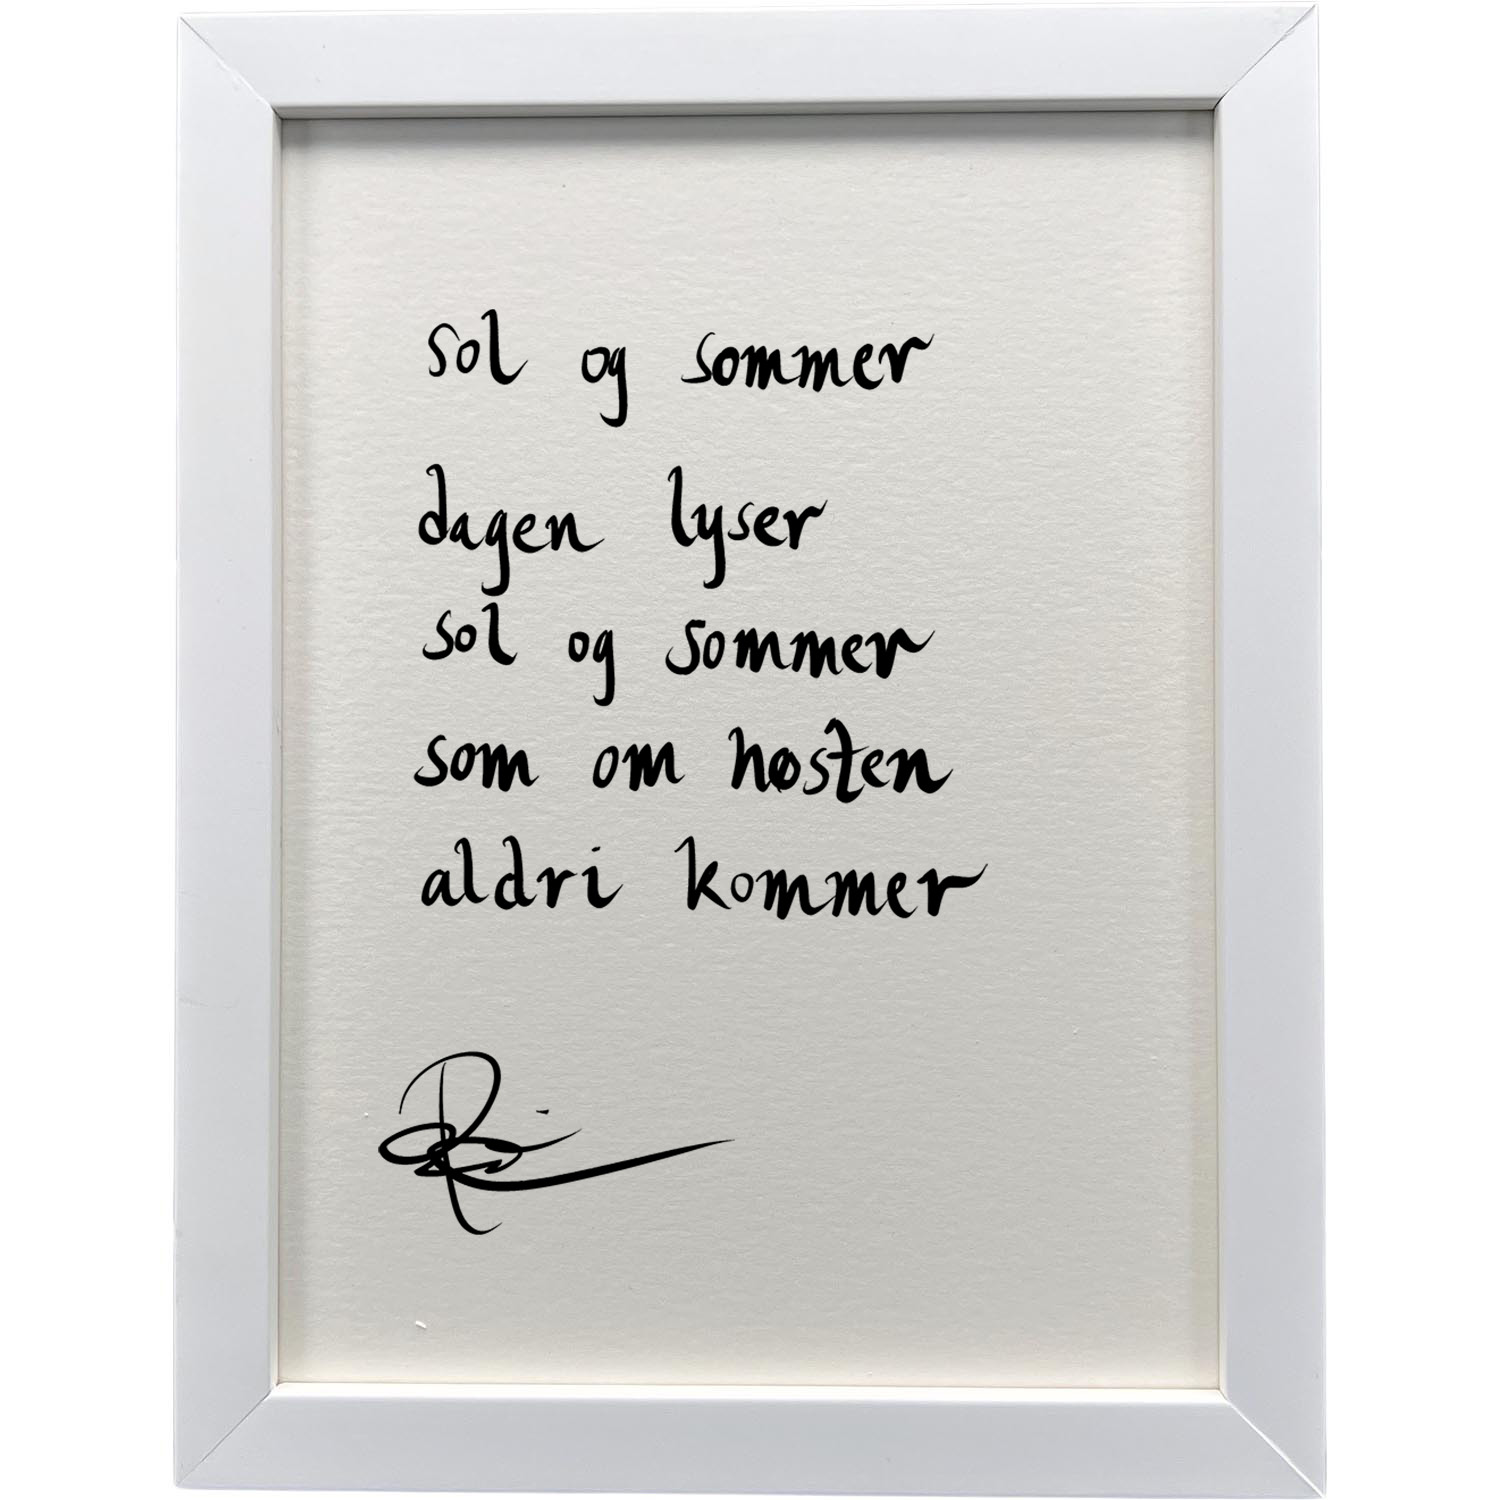 sol og sommer
dagen lyser
sol og sommer
som om høsten
aldri kommer